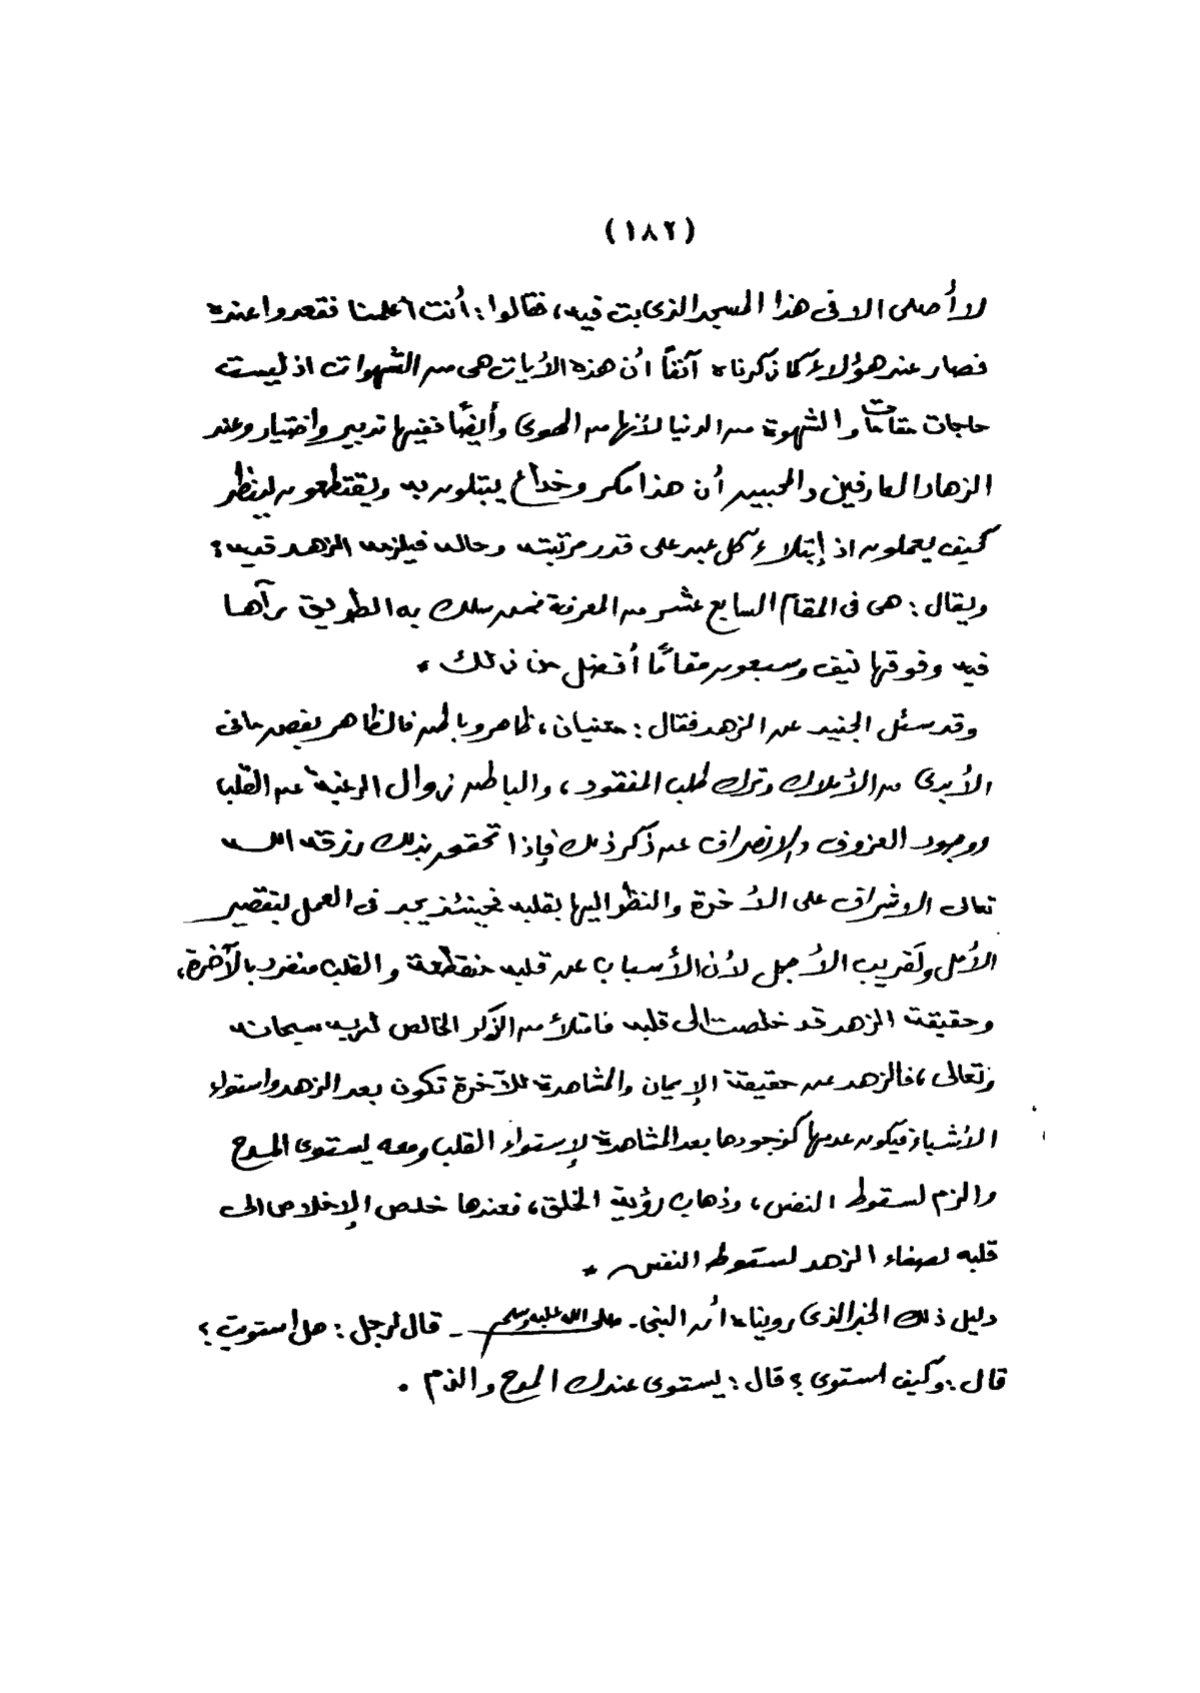 (١٨٢)
لا أصلى الا فى هذا المسجد الذى بت فيه، فقالوا: أنت أعلمنا فقعدوا عنده
فصار عند هؤلاء كما ذكرناه آنفاً أن هذه الأيات هى من الشهوات اذ ليست
حاجات مقامات والشهوة من الدنيا لأنها من الهوى وأيضاً ففيها تدبير واختيار وعند
الزهاد العارفين والمحبين أن هذا مكر وخداع يبتلون به ويقتطعون لينظر
كيف يعملون اذ إبتلاء كل عبد على قدر مرتبته وحاله فيلزمه الزهد فيه؟
ويقال: هى فى المقام السابع عشر من المعرفة فمن سلك به الطريق رآها
فيه وفوقها نيف وسبعون مقامًا أفضل من ذلك *
وقد سئل الجنيد عن الزهد فقال: معنيان، ظاهر وباطن فالظاهر بغض مافى
الأيدى من الأملاك وترك طلب المفقود، والباطن زوال الرغبة عن القلب
ووجود العزوف والإنصراف عن ذكر ذلك فإذا تحقق بذلك رزقه الله
تعالى الاشراف على الأخرة والنظر اليها بقلبه فحينئذ يجد فى العمل لتقصير
الأمل وتقريب الأجل لأن الأسباب عن قلبه منقطعة والقلب منفرد بالآخرة،
وحقيقة الزهد قد خلصت الى قلبه فامتلأ من الذكر الخالص لربه سبحانه
وتعالى، فالزهد عن حقيقة الإيمان والمشاهدة للآخرة تكون بعد الزهد واستواء
الأشياء فيكون عدمها كوجودها بعد المشاهدة لإستواء القلب ومعه يستوى المدح
والزم لسقوط النفس، وذهاب رؤية الخلق، فعندها خلص الإخلاص الى
قلبه لصفاء الزهد لسقوط النفس *
دليل ذلك الخبر الذى رويناه أن النبى - صلى الله عليه وسلم - قال لرجل: هل استويت؟
قال: وكيف استوى؟ قال: يستوى عندك المدح والذم .